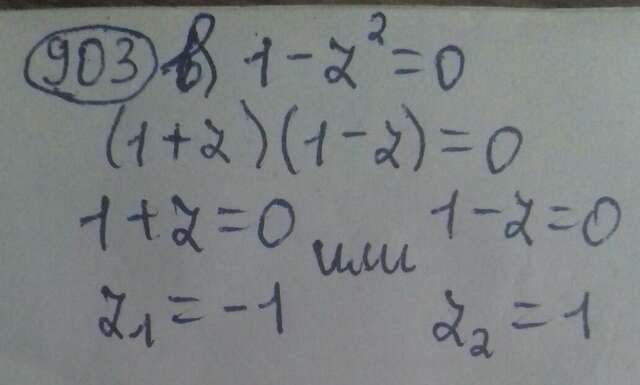 903 в) 1 - z² = 0
(1 + z)(1 - z) = 0
1 + z = 0 или 1 - z = 0
z₁ = -1 z₂ = 1